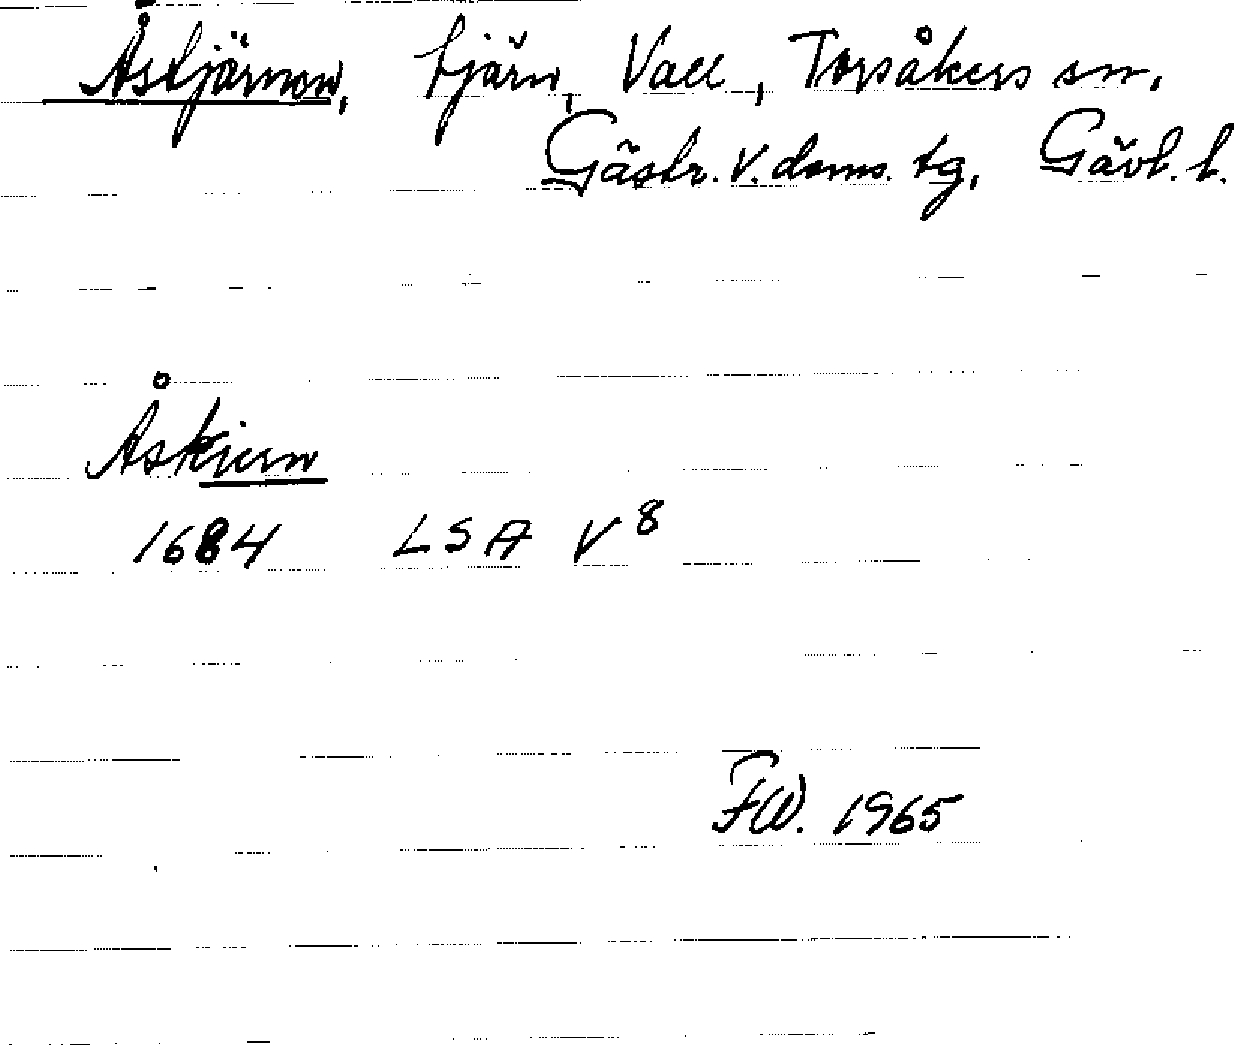 Åstjärnen, tjärn, Vall, Torsåkers sn,
Gästr. V. doms. tg, Gävl. l.
Åskiern
1684 LSA V 8
FW. 1965